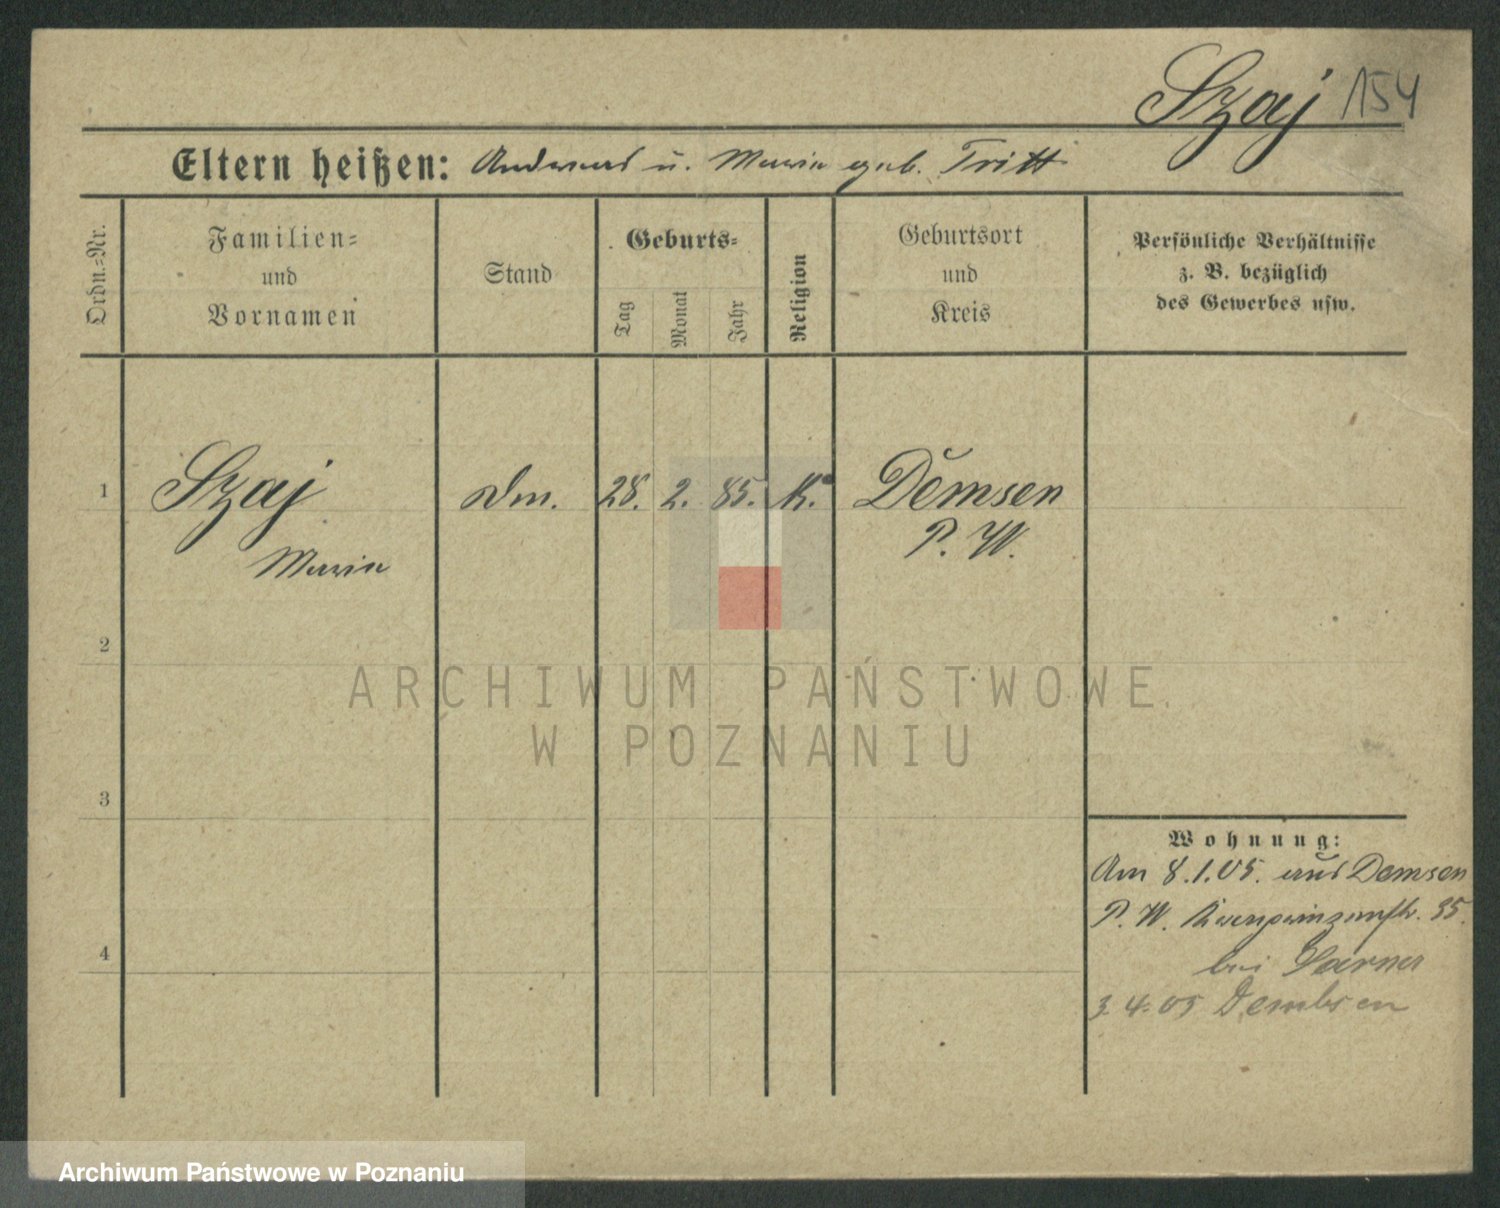 Szaj 154
Eltern heißen: Andreas u. Maria geb. Tritt
Ordn.-Nr.
Familien-
und
Vornamen
Stand
Geburts-
Tag
Monat
Jahr
Religion
Geburtsort
und
Kreis
Persönliche Verhältnisse
z. B. bezüglich
des Gewerbes usw.
1 Szaj Dm. 28. 2. 85. K. Demsen
Maria P. W.
2
3
4
ARCHIWUM PAŃSTWOWE
W POZNANIU
Wohnung:
Am 8.1.05. aus Demsen
P. W. Kronprinzenstr. 35.
bei
3.4.05 Dembsen
Archiwum Państwowe w Poznaniu